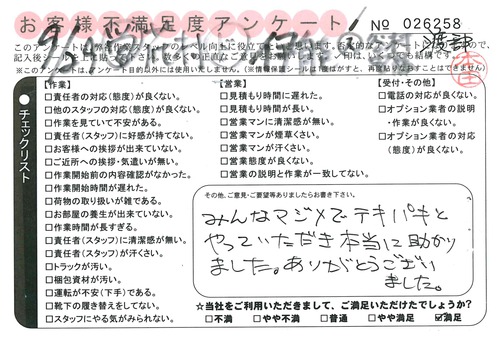 お客様不満足度アンケート！
No 026258
渡部
※このアンケートは、アンケート目的以外には使用いたしません。(※情報保護シールは1度はがすと、再度貼りなおすことはできません)
チェックリスト
【作業】
□責任者の対応(態度)が良くない。
□他のスタッフの対応(態度)が良くない。
□作業を見ていて不安がある。
□責任者(スタッフ)に好感が持てない。
□お客様への挨拶が出来ていない。
□ご近所への挨拶・気遣いが無い。
□作業開始前の内容確認がなかった。
□作業開始時間が遅れた。
□荷物の取り扱いが雑である。
□お部屋の養生が出来ていない。
□作業時間が長すぎる。
□責任者(スタッフ)に清潔感が無い。
□責任者(スタッフ)が汗くさい。
□トラックが汚い。
□梱包資材が汚い。
□運転が不安(下手)である。
□靴下の履き替えをしてない。
□スタッフにやる気がみられない。
【営業】
□見積もり時間に遅れた。
□見積もり時間が長い。
□営業マンに清潔感が無い。
□営業マンが煙草くさい。
□営業マンが汗くさい。
□営業態度が良くない。
□営業の説明と作業が一致してない。
【受付・その他】
□電話の対応が良くない。
□オプション業者の説明
・作業が良くない。
□オプション業者の対応
(態度)が良くない。
その他、ご意見・ご要望等ありましたらお書き下さい。
みんなマジメでテキパキと
やっていただき本当に助かり
ました。ありがとうござい
ました。
☆当社をご利用いただきまして、ご満足いただけたでしょうか?
□不満 □やや不満 □普通 □やや満足 ☑満足